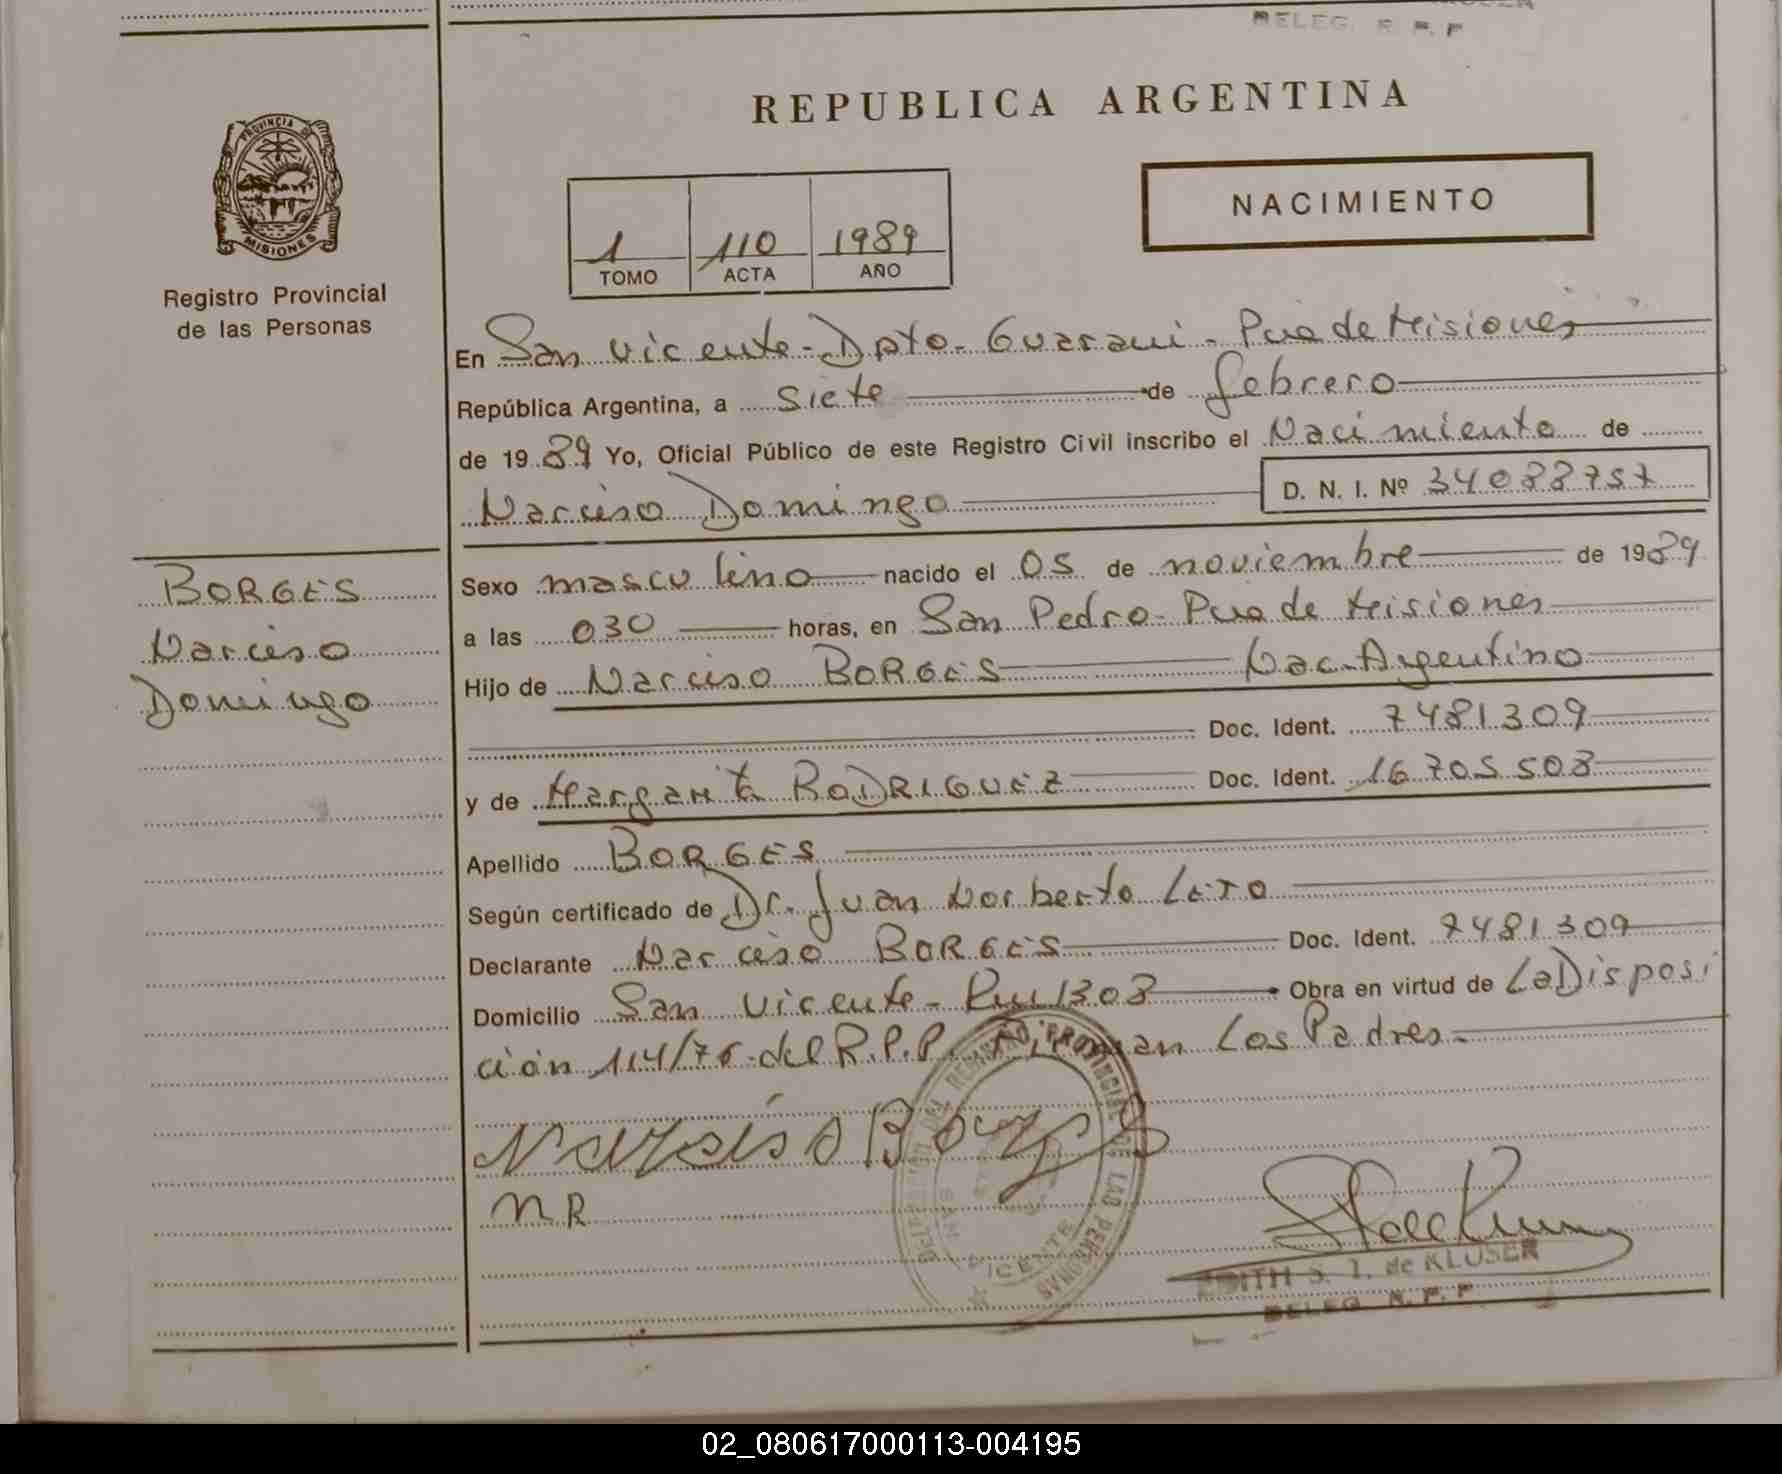 DELEG. R. P. P
REPUBLICA ARGENTINA
PROVINCIA DE
MISIONES
Registro Provincial
de las Personas
NACIMIENTO
1 110 1989
TOMO ACTA AÑO
En San Vicente - Dpto - Guarani - Pcia de Misiones
República Argentina, a siete de febrero
de 1989 Yo, Oficial Público de este Registro Civil inscribo el Nacimiento de
Narciso Domingo D. N. I. Nº 34088757
BORGES
Narciso
Domingo
Sexo masculino nacido el 05 de noviembre de 1989
a las 030 horas, en San Pedro - Pcia de Misiones
Hijo de Narciso BORGES Nac. Argentino
Doc. Ident. 7481309
y de Margarita RODRIGUEZ Doc. Ident. 16705508
Apellido BORGES
Según certificado de Dr. Juan Norberto
Declarante Narciso BORGES Doc. Ident. 7481309
Domicilio San Vicente - Obra en virtud de La Disposi
ción 114/76 del R.P.P. Firman Los Padres -
Narciso Borges
N R
DELEGACION DEL REGISTRO PROVINCIAL DE LAS PERSONAS
SAN VICENTE
EDITH S. I. de KLUSER
DELEG. R. P. P
02_080617000113-004195